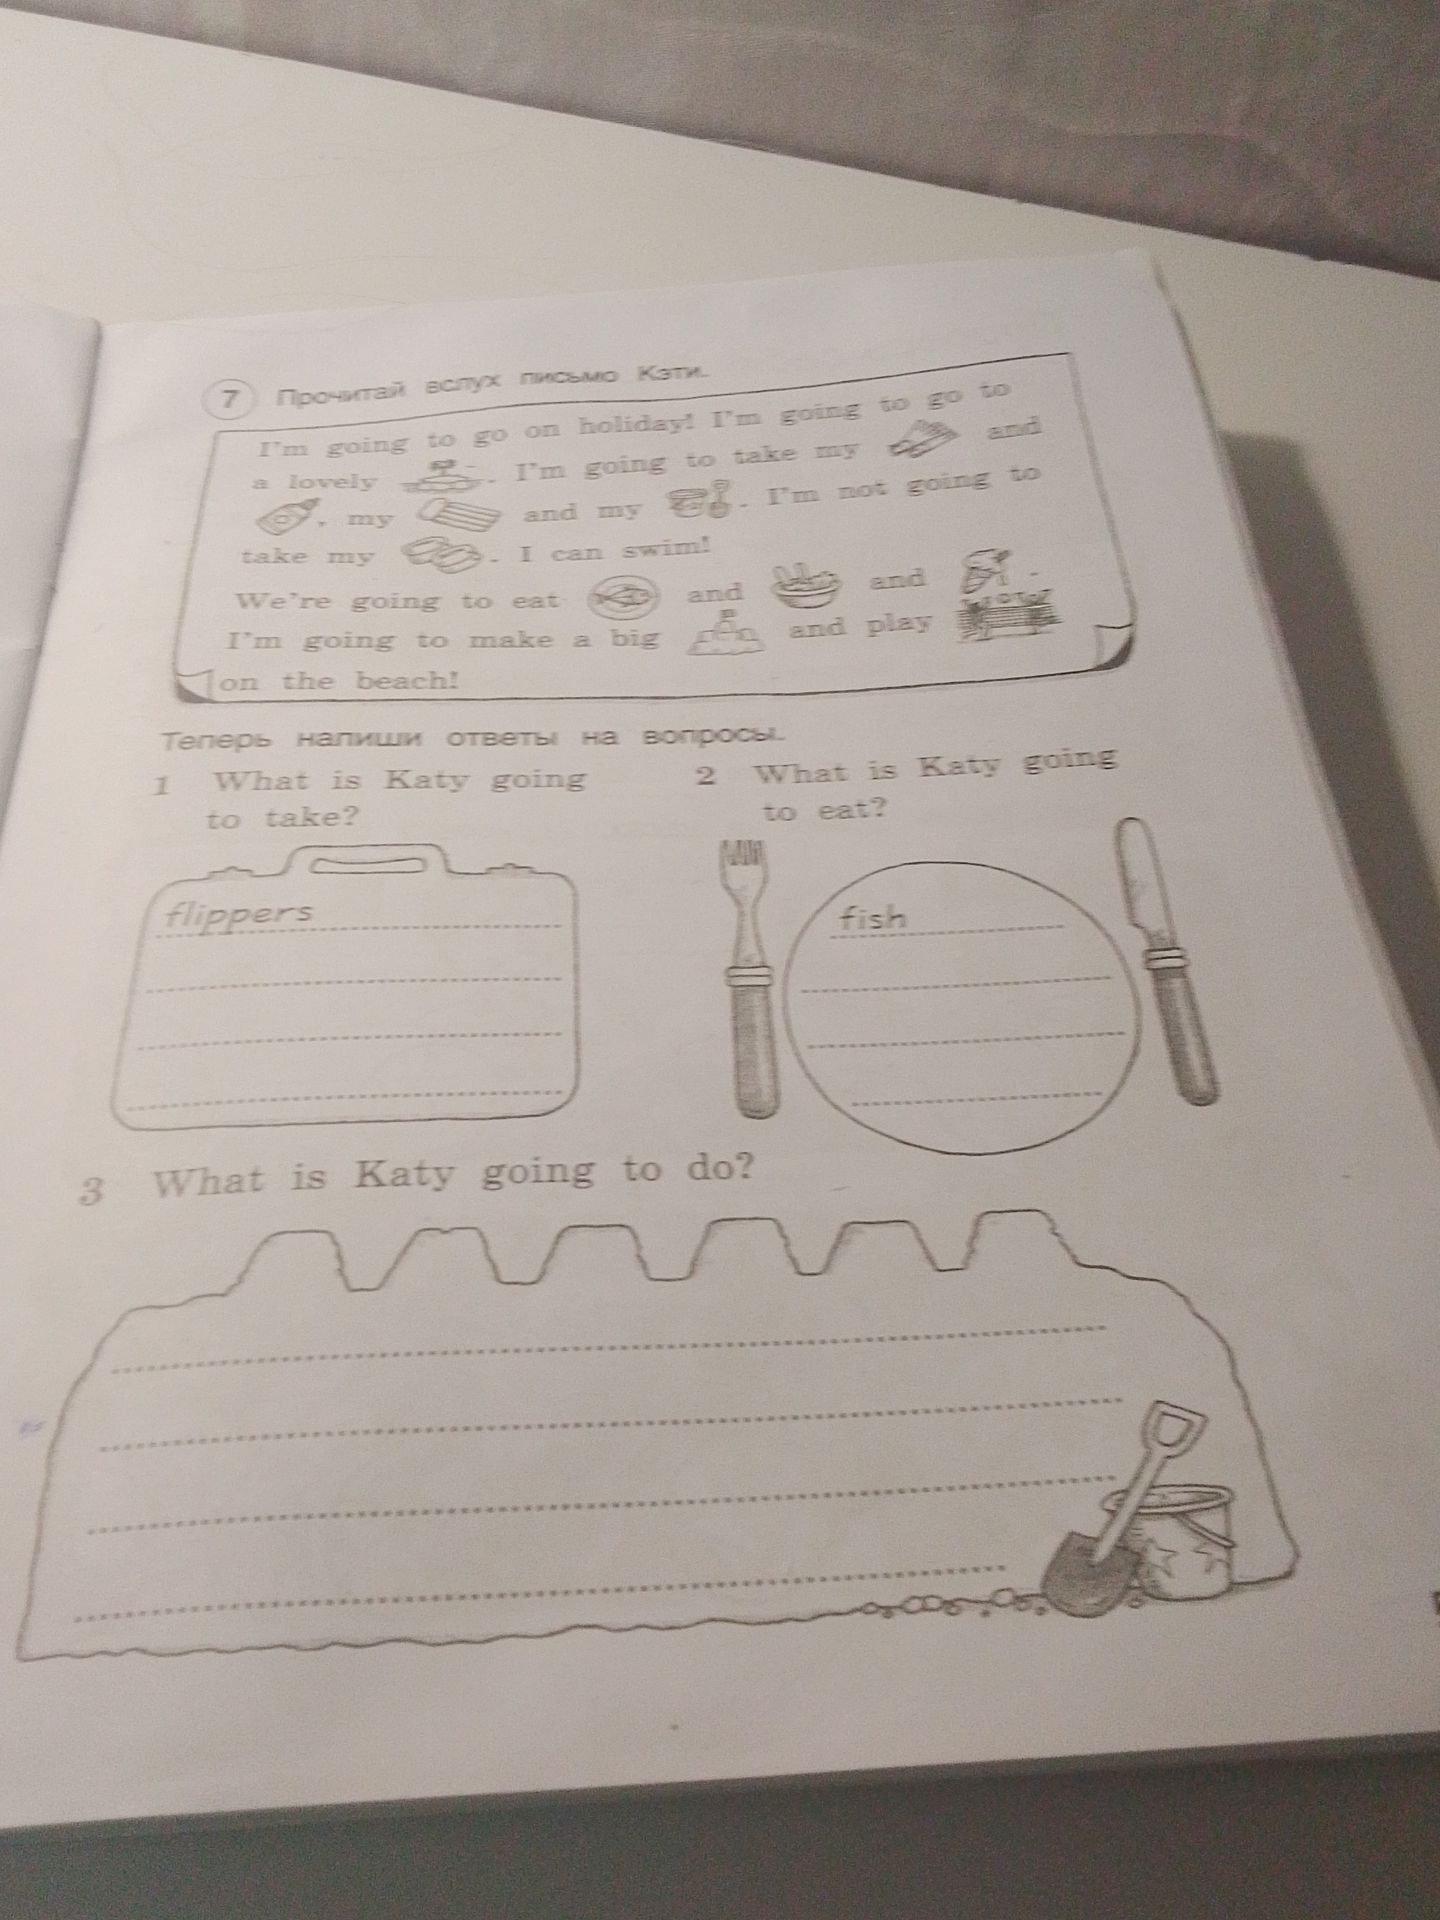 7 Прочитай вслух письмо Кэти.
I'm going to go on holiday! I'm going to go to
a lovely . I'm going to take my and
, my and my . I'm not going to
take my . I can swim!
We're going to eat and and .
I'm going to make a big and play
on the beach!
Теперь напиши ответы на вопросы.
1 What is Katy going
to take?
2 What is Katy going
to eat?
flippers
fish
3 What is Katy going to do?